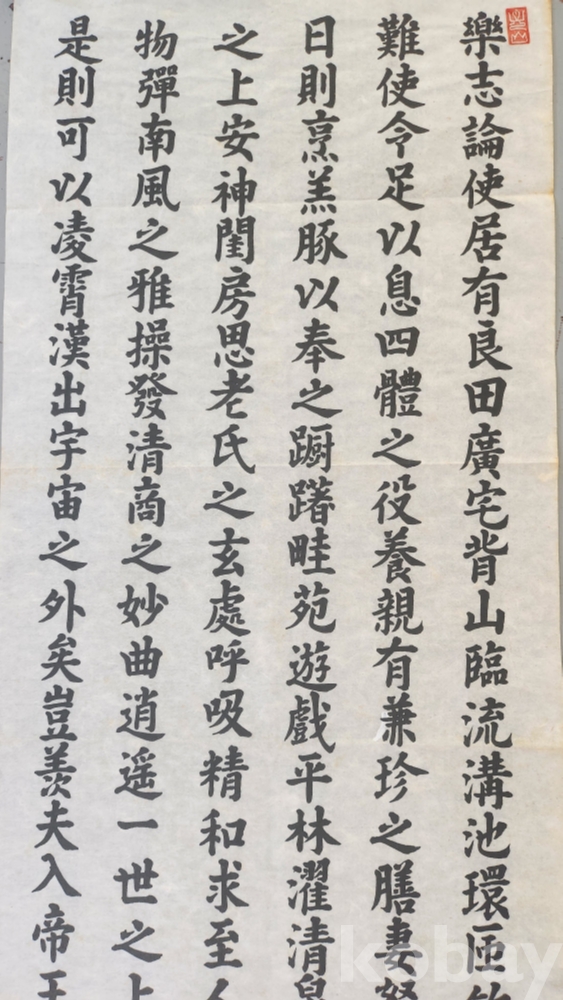 樂志論使居有良田廣宅背山臨流溝池環匝
難使令足以息四體之役養親有兼珍之膳妻孥
日則烹羔豚以奉之蹰躇畦苑遊戲平林濯清
之上安神閨房思老氏之玄處呼吸精和求至人
物彈南風之雅操發清商之妙曲逍遥一世之上
是則可以凌霄漢出宇宙之外矣豈羨夫入帝王
kobay